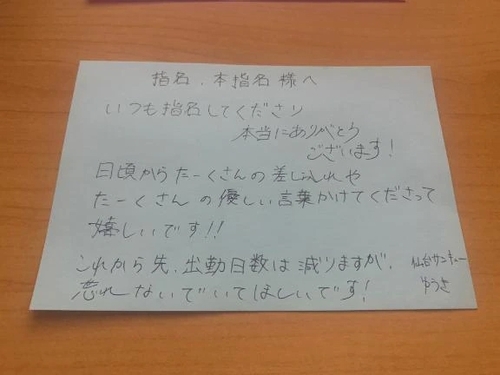 指名、本指名様へ
いつも指名してくださり
本当にありがとう
ございます!
日頃からたーくさんの差し入れや
たーくさんの優しい言葉かけてくださって
嬉しいです!!
これから先、出動日数は減りますが、
忘れないでいてほしいです!
仙台サンキュー
ゆうさ